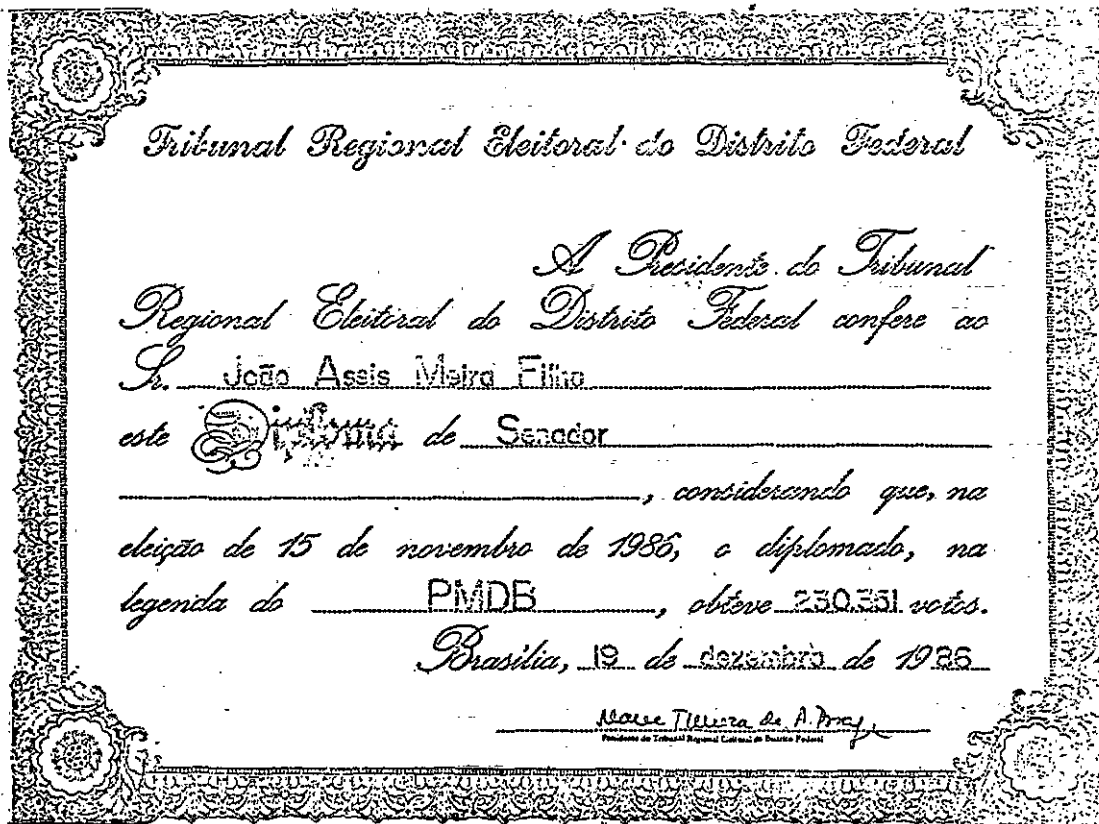 Tribunal Regional Eleitoral do Distrito Federal
A Presidente do Tribunal
Regional Eleitoral do Distrito Federal confere ao
Sr. João Assis Meira Filho
este Diploma de Senador
, considerando que, na
eleição de 15 de novembro de 1986, o diplomado, na
legenda do PMDB, obteve 230.351 votos.
Brasília, 19 de dezembro de 1986
Presidente do Tribunal Regional Eleitoral do Distrito Federal